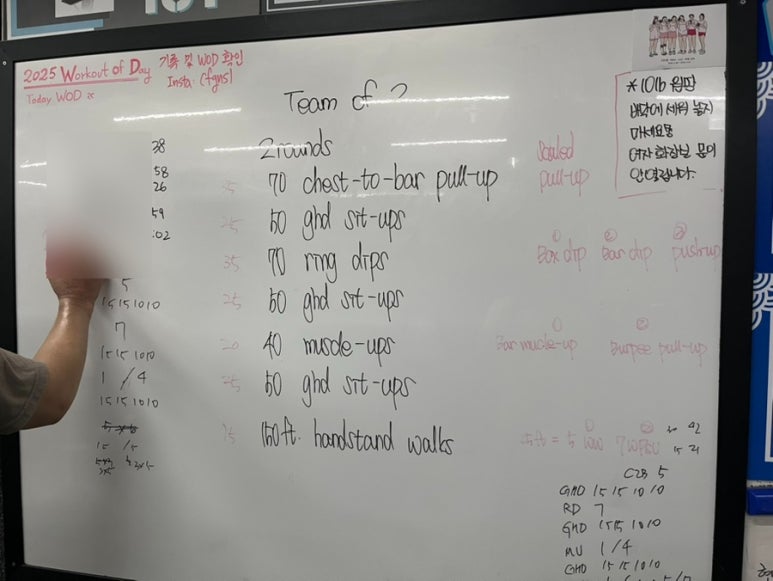 2025 Workout of Day 기록 및 WOD 확인
Insta: (fgns)
Today WOD
Team of 2
2 rounds
25 70 chest-to-bar pull-up
25 50 ghd sit-ups
35 70 ring dips
25 50 ghd sit-ups
20 40 muscle-ups
25 50 ghd sit-ups
75 150ft. handstand walks
Scaled
pull-up
① ② ③
Box dip Bar dip push-up
① ②
Bar muscle-up Burpee pull-up
① ②
5ft = 5
* 10lb 원판
바닥에 세워 놓지
마세요
여자 화장실 문이
안 열립니다.
38
58
26
59
:02
5
15 15 10 10
7
15 15 10 10
1 / 4
15 15 10 10
15 / 5
C2B 5
GHD 15 15 10 10
RD 7
GHD 15 15 10 10
MU 1 / 4
GHD 15 15 10 10